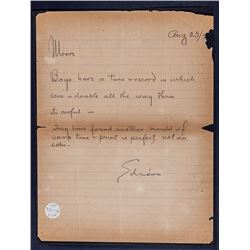 Aug 23/
Moore
Boys have a tune + record in which
tone is double all the way thru
Its awful -
They have found another mould of
same tune + print is perfect not an
echo.
Edison